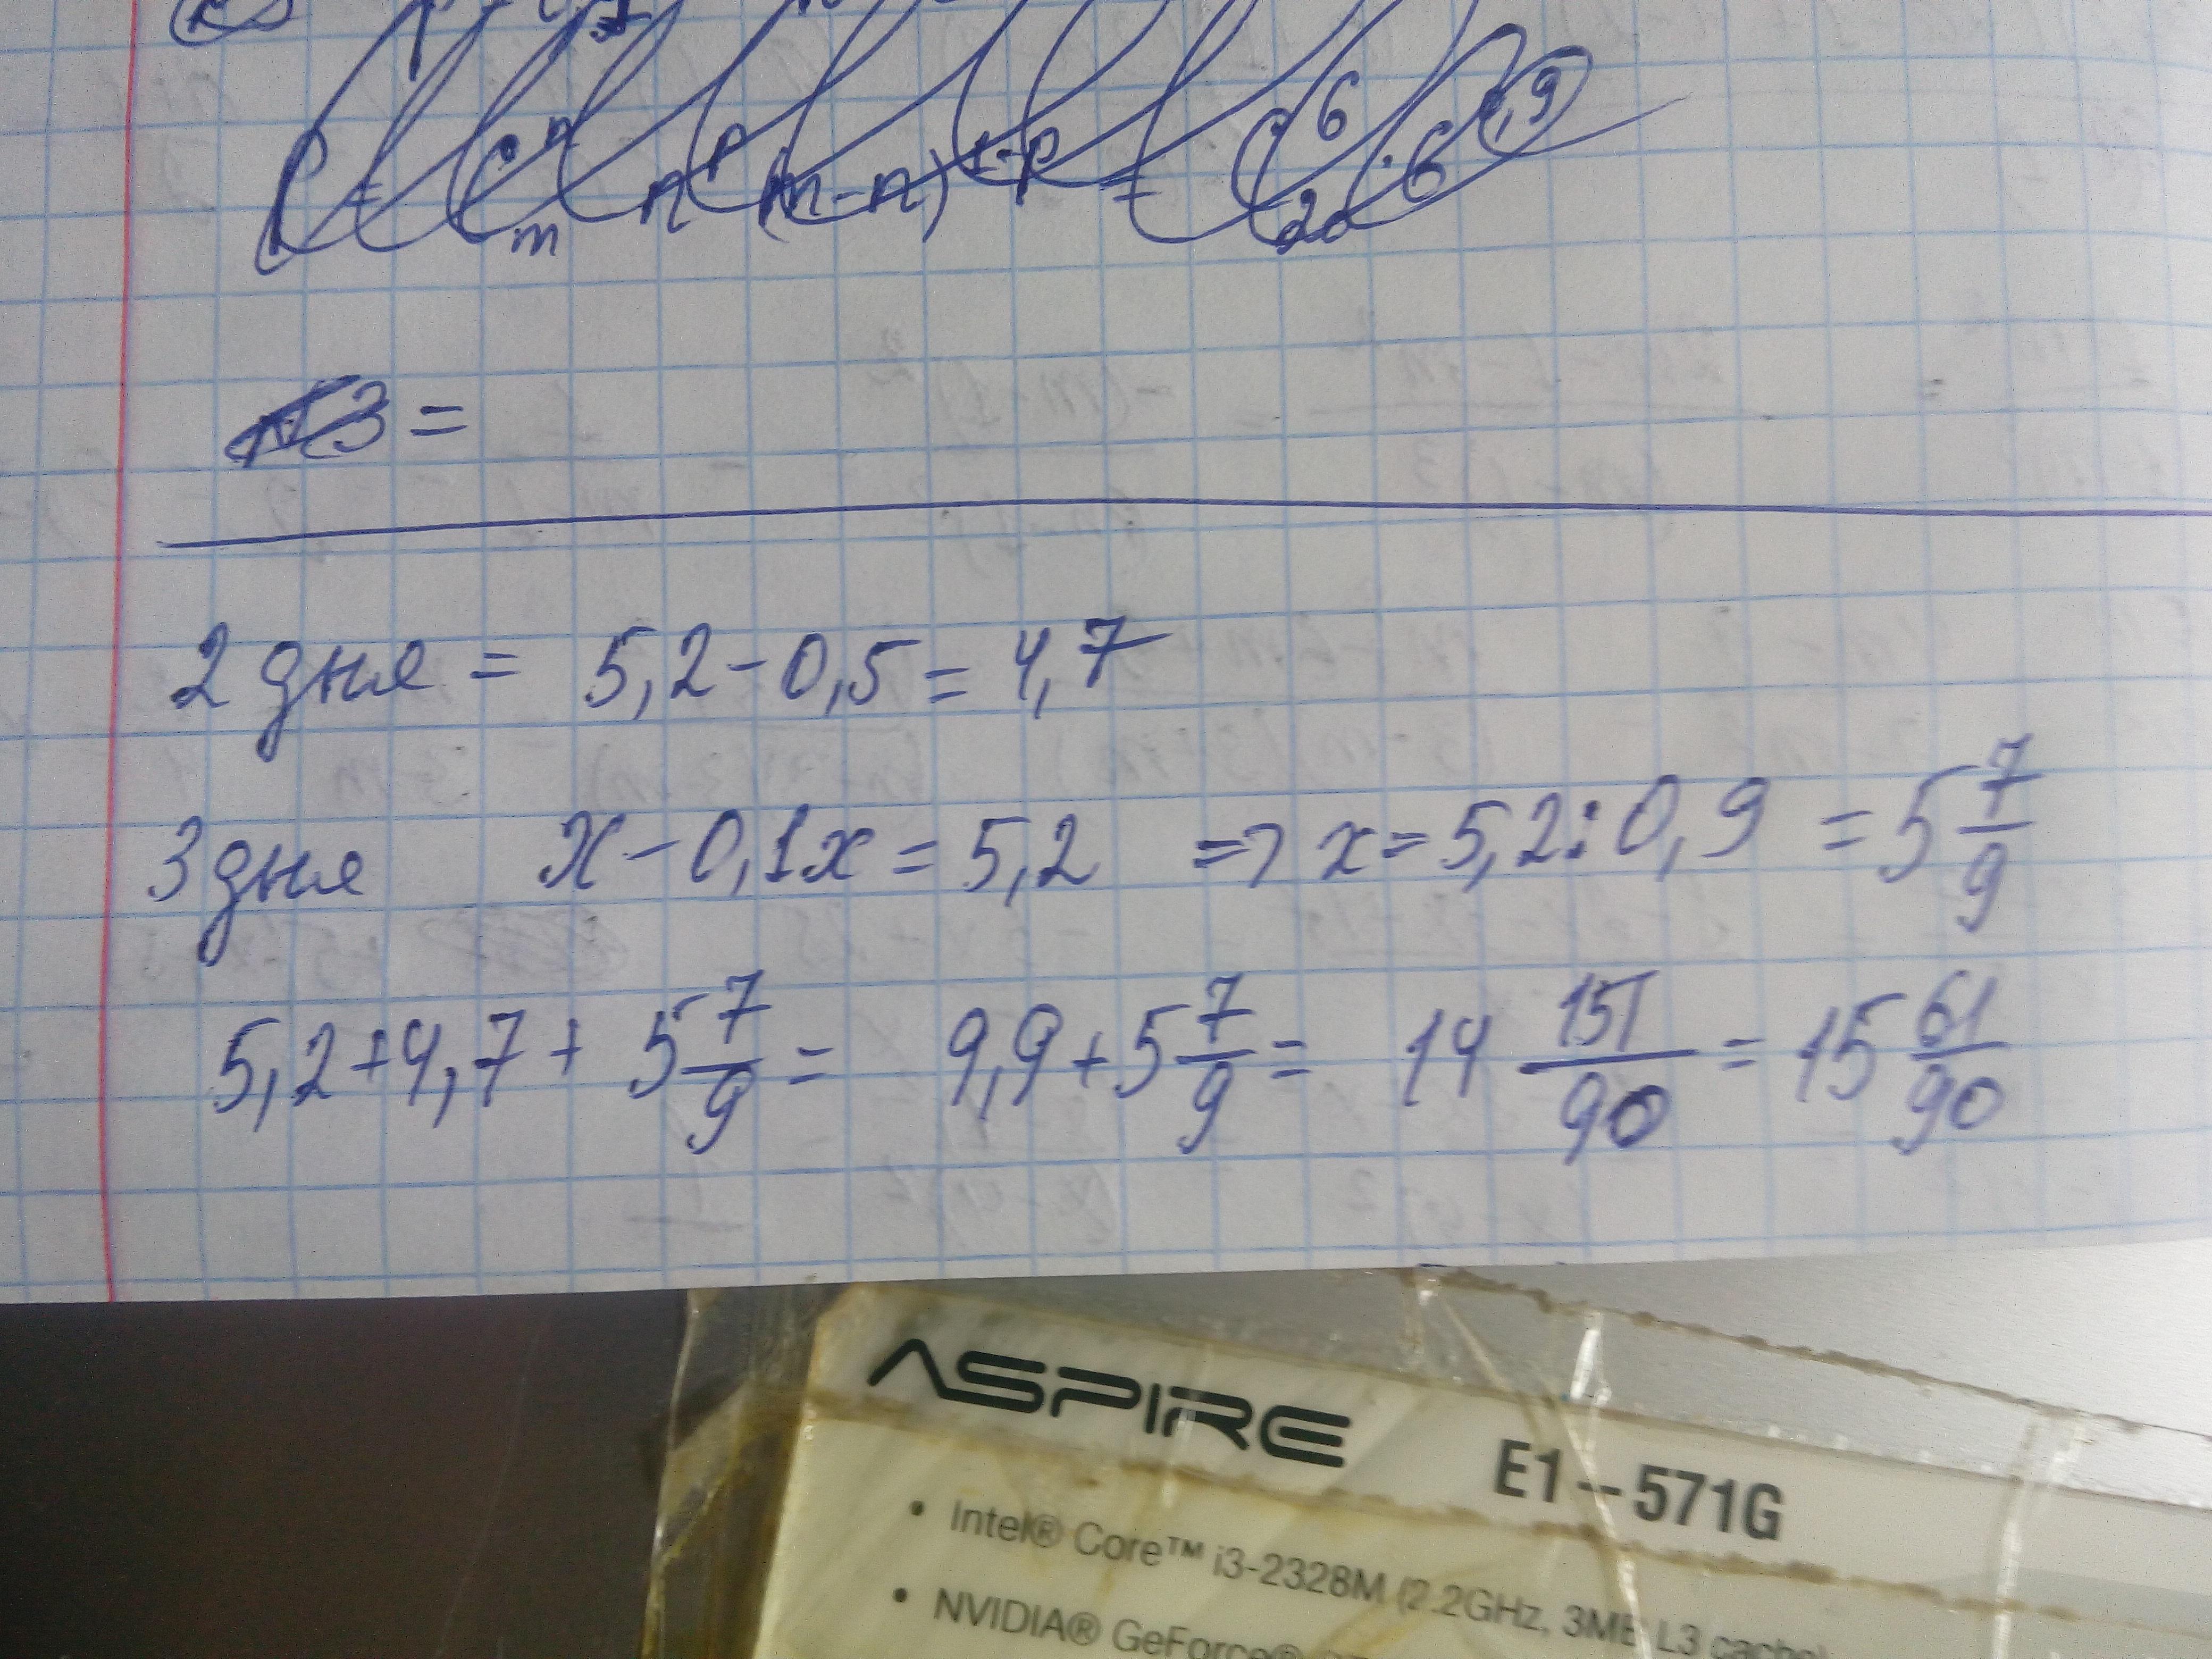 P = C_m^n n^p (m-n)^{1-p} = C_20^6 · 6
=
2 дня = 5,2 - 0,5 = 4,7
3 дня x - 0,1x = 5,2 => x = 5,2 : 0,9 = 5 7/9
5,2 + 4,7 + 5 7/9 = 9,9 + 5 7/9 = 14 151/90 = 15 61/90
ASPIRE E1-571G
• Intel® Core™ i3-2328M (2.2GHz, 3MB L3 cache)
• NVIDIA® GeForce®